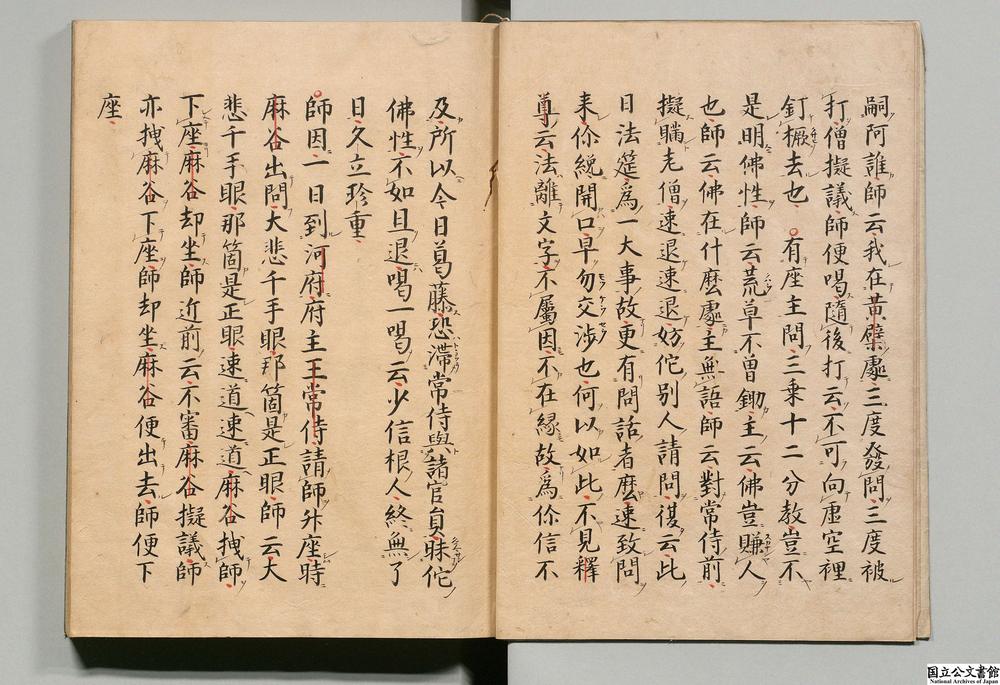 嗣阿誰師云我在黃檗處三度發問三度被
打僧擬議師便喝隨後打云不可向虛空裡
釘橛去也○有座主問三乘十二分教豈不
是明佛性師云荒草不曾鋤主云佛豈賺人
也師云佛在什麼處主無語師云對常侍前
擬瞞老僧速退速退妨佗別人請問復云此
日法筵爲一大事故更有問話者麼速致問
来你纔開口早勿交涉也何以如此不見釋
尊云法離文字不屬因不在緣故爲你信不
及所以今日葛藤恐滯常侍與諸官員昧佗
佛性不如且退喝一喝云少信根人終無了
日久立珍重
○師因一日到河府府主王常侍請師升座時
麻谷出問大悲千手眼那箇是正眼師云大
悲千手眼那箇是正眼速道速道麻谷拽師
下座麻谷却坐師近前云不審麻谷擬議師
亦拽麻谷下座師却坐麻谷便出去師便下
座
国立公文書館
National Archives of Japan